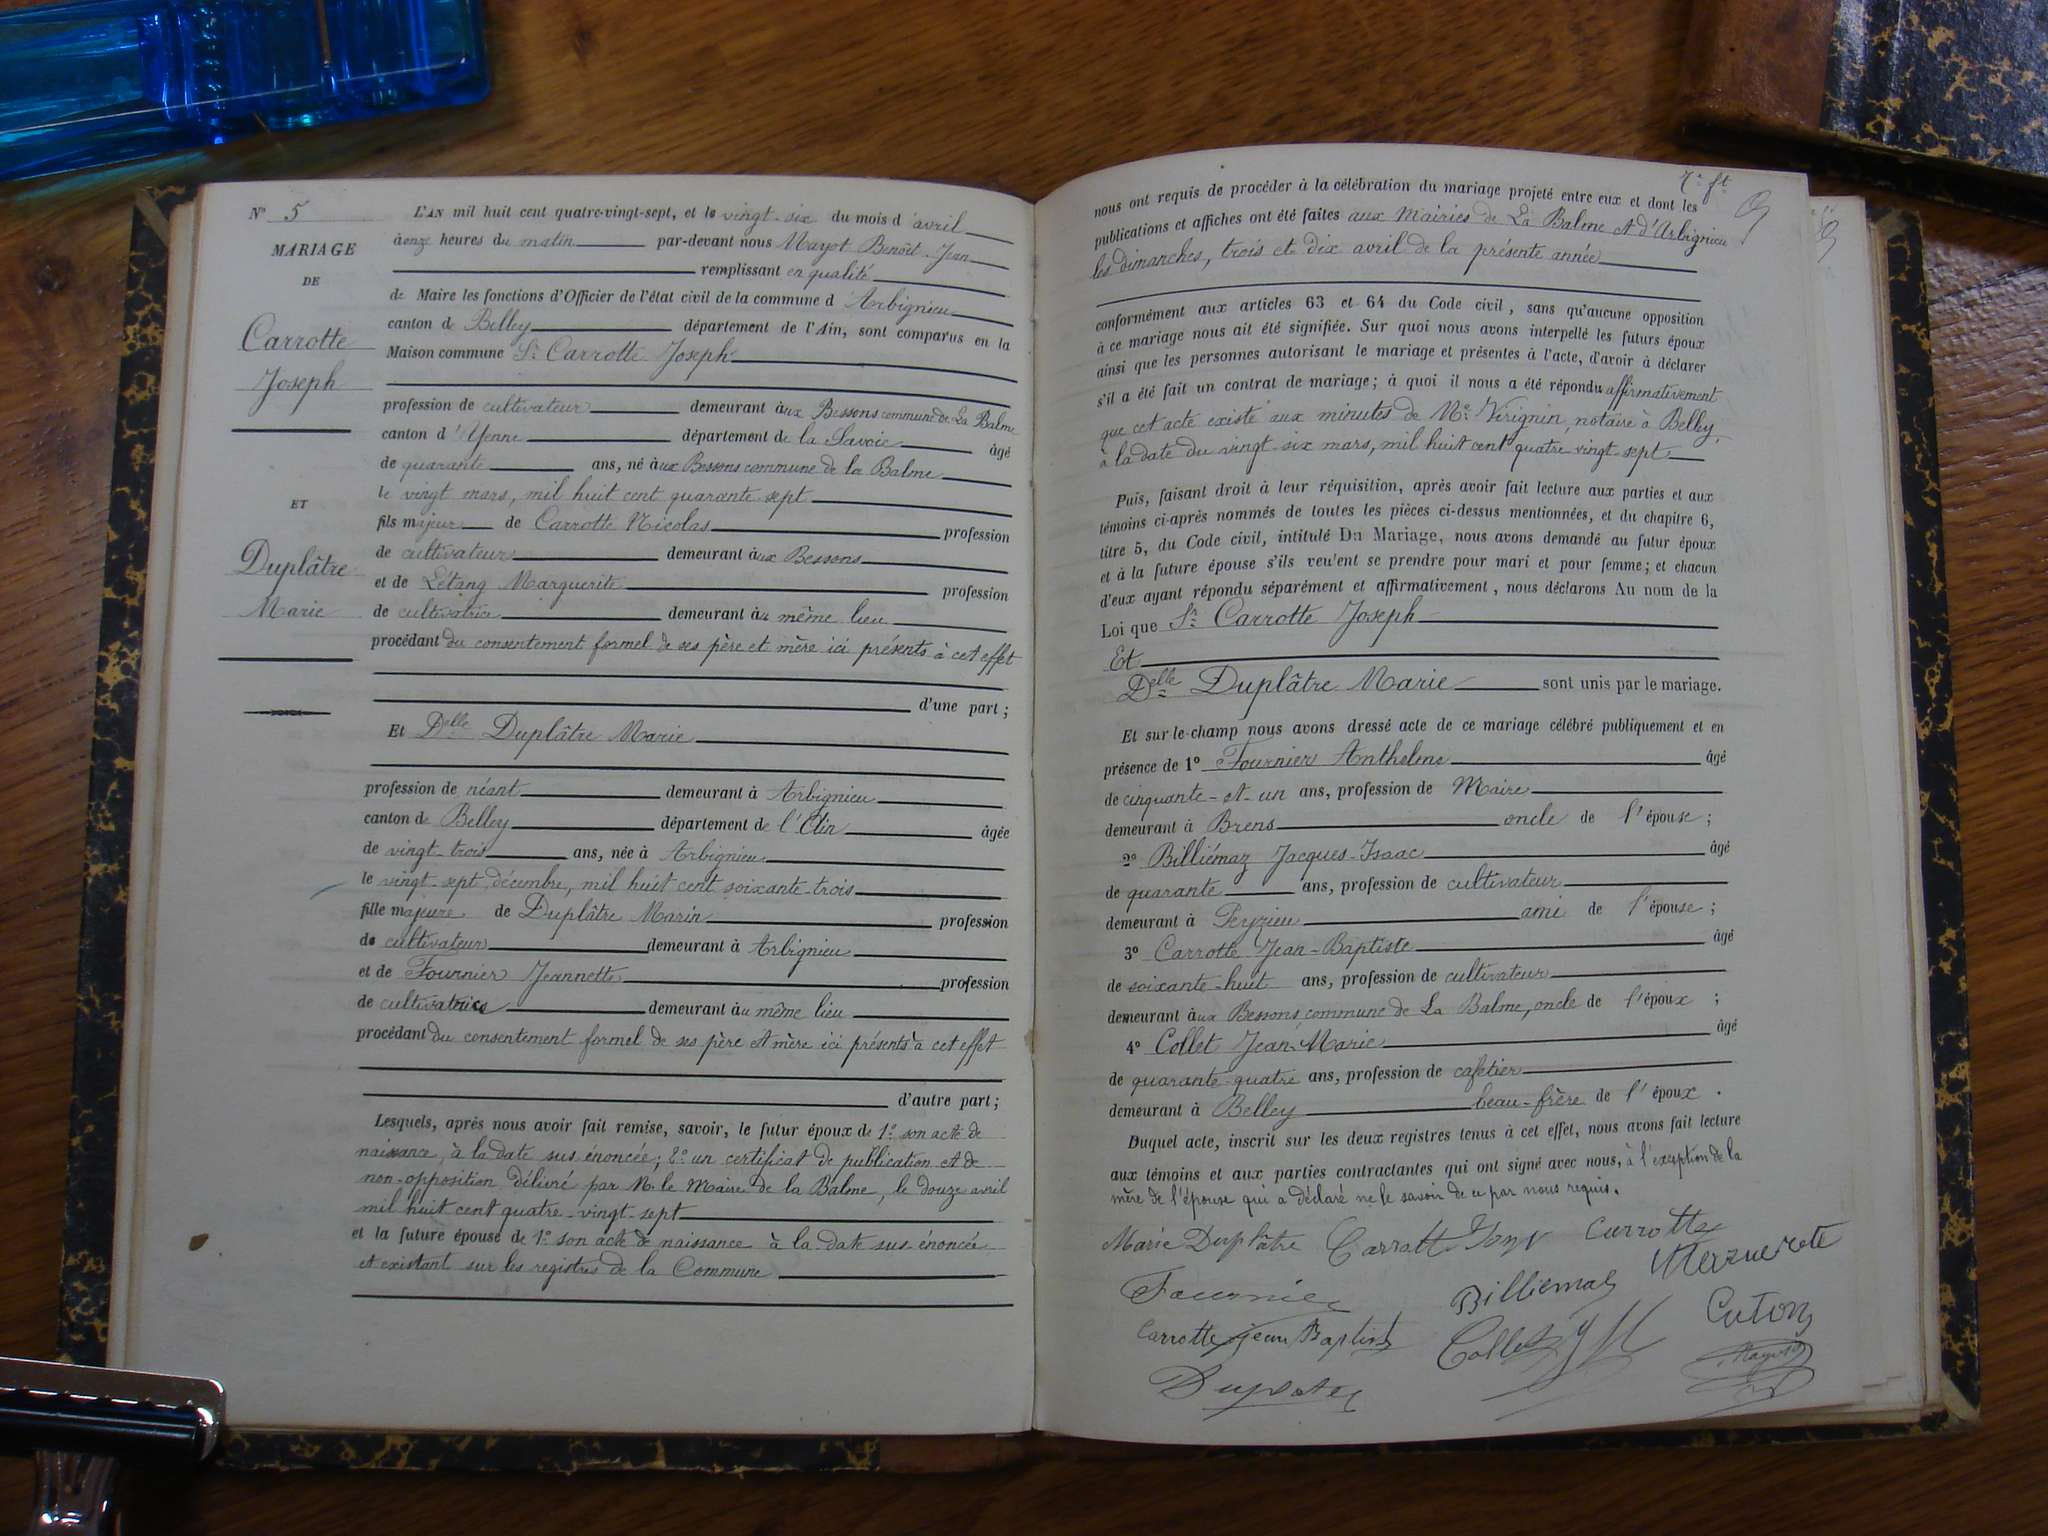 N° 5
MARIAGE
DE
Carrotte
Joseph
ET
Duplâtre
Marie
L'AN mil huit cent quatre-vingt-sept, et le vingt-six du mois d'avril
à onze heures du matin par-devant nous Mayot Benoît-Jean
remplissant en qualité
de Maire les fonctions d'Officier de l'état civil de la commune d'Arbignieu
canton de Belley département de l'Ain, sont comparus en la
Maison commune Sr Carrotte Joseph
profession de cultivateur demeurant aux Bessons commune de La Balme
canton d'Yenne département de la Savoie âgé
de quarante ans, né aux Bessons commune de la Balme
le vingt mars, mil huit cent quarante-sept
fils majeur de Carrotte Nicolas profession
de cultivateur demeurant aux Bessons
et de Létang Marguerite profession
de cultivatrice demeurant au même lieu
procédant du consentement formel de ses père et mère ici présents à cet effet
d'une part ;
Et Delle Duplâtre Marie
profession de néant demeurant à Arbignieu
canton de Belley département de l'Ain âgée
de vingt-trois ans, née à Arbignieu
le vingt-sept décembre, mil huit cent soixante-trois
fille majeure de Duplâtre Marin profession
de cultivateur demeurant à Arbignieu
et de Fournier Jeannette profession
de cultivatrice demeurant au même lieu
procédant du consentement formel de ses père et mère ici présents à cet effet
d'autre part ;
Lesquels, après nous avoir fait remise, savoir, le futur époux de 1° son acte de
naissance, à la date sus énoncée; 2° un certificat de publication et de
non-opposition délivré par M. le Maire de la Balme, le douze avril
mil huit cent quatre-vingt-sept
et la future épouse de 1° son acte de naissance à la date sus énoncée
et existant sur les registres de la Commune
7e ft
nous ont requis de procéder à la célébration du mariage projeté entre eux et dont les
publications et affiches ont été faites aux Mairies de La Balme et d'Arbignieu
les dimanches, trois et dix avril de la présente année
conformément aux articles 63 et 64 du Code civil, sans qu'aucune opposition
à ce mariage nous ait été signifiée. Sur quoi nous avons interpellé les futurs époux
ainsi que les personnes autorisant le mariage et présentes à l'acte, d'avoir à déclarer
s'il a été fait un contrat de mariage ; à quoi il nous a été répondu affirmativement
que cet acte existe aux minutes de Me Vérignin, notaire à Belley,
à la date du vingt-six mars, mil huit cent quatre vingt-sept
Puis, faisant droit à leur réquisition, après avoir fait lecture aux parties et aux
témoins ci-après nommés de toutes les pièces ci-dessus mentionnées, et du chapitre 6,
titre 5, du Code civil, intitulé Du Mariage, nous avons demandé au futur époux
et à la future épouse s'ils veulent se prendre pour mari et pour femme ; et chacun
d'eux ayant répondu séparément et affirmativement, nous déclarons Au nom de la
Loi que Sr Carrotte Joseph
Et
Delle Duplâtre Marie sont unis par le mariage.
Et sur-le-champ nous avons dressé acte de ce mariage célébré publiquement et en
présence de 1° Fournier Anthelme âgé
de cinquante-et-un ans, profession de Maire
demeurant à Brens oncle de l'épouse ;
2° Billiémaz Jacques-Isaac âgé
de quarante ans, profession de cultivateur
demeurant à Peyzieu ami de l'épouse ;
3° Carrotte Jean-Baptiste âgé
de soixante-huit ans, profession de cultivateur
demeurant aux Bessons commune de La Balme, oncle de l'époux ;
4° Collet Jean-Marie âgé
de quarante-quatre ans, profession de cafetier
demeurant à Belley beau-frère de l'époux.
Duquel acte, inscrit sur les deux registres tenus à cet effet, nous avons fait lecture
aux témoins et aux parties contractantes qui ont signé avec nous, à l'exception de la
mère de l'épouse qui a déclaré ne le savoir de ce par nous requis.
Marie Duplâtre Carrotte Currotte
Fournier Billiemaz
Carrotte jean Baptiste Collet